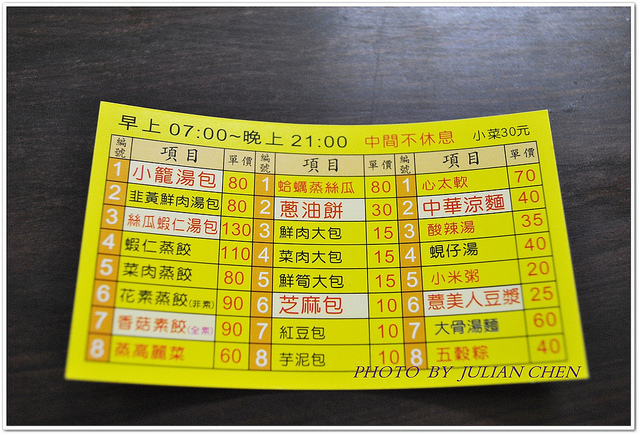 早上 07:00~晚上 21:00 中間不休息 小菜30元
編號 項目 單價 編號 項目 單價 編號 項目 單價
1 小籠湯包 80 1 蛤蠣蒸絲瓜 80 1 心太軟 70
2 韭黃鮮肉湯包 80 2 蔥油餅 30 2 中華涼麵 40
3 絲瓜蝦仁湯包 130 3 鮮肉大包 15 3 酸辣湯 35
4 蝦仁蒸餃 110 4 菜肉大包 15 4 蜆仔湯 40
5 菜肉蒸餃 80 5 鮮筍大包 15 5 小米粥 20
6 花素蒸餃(非素) 90 6 芝麻包 10 6 薏美人豆漿 25
7 香菇素餃(全素) 90 7 紅豆包 10 7 大骨湯麵 60
8 蒸高麗菜 60 8 芋泥包 10 8 五穀粽 40
PHOTO BY JULIAN CHEN